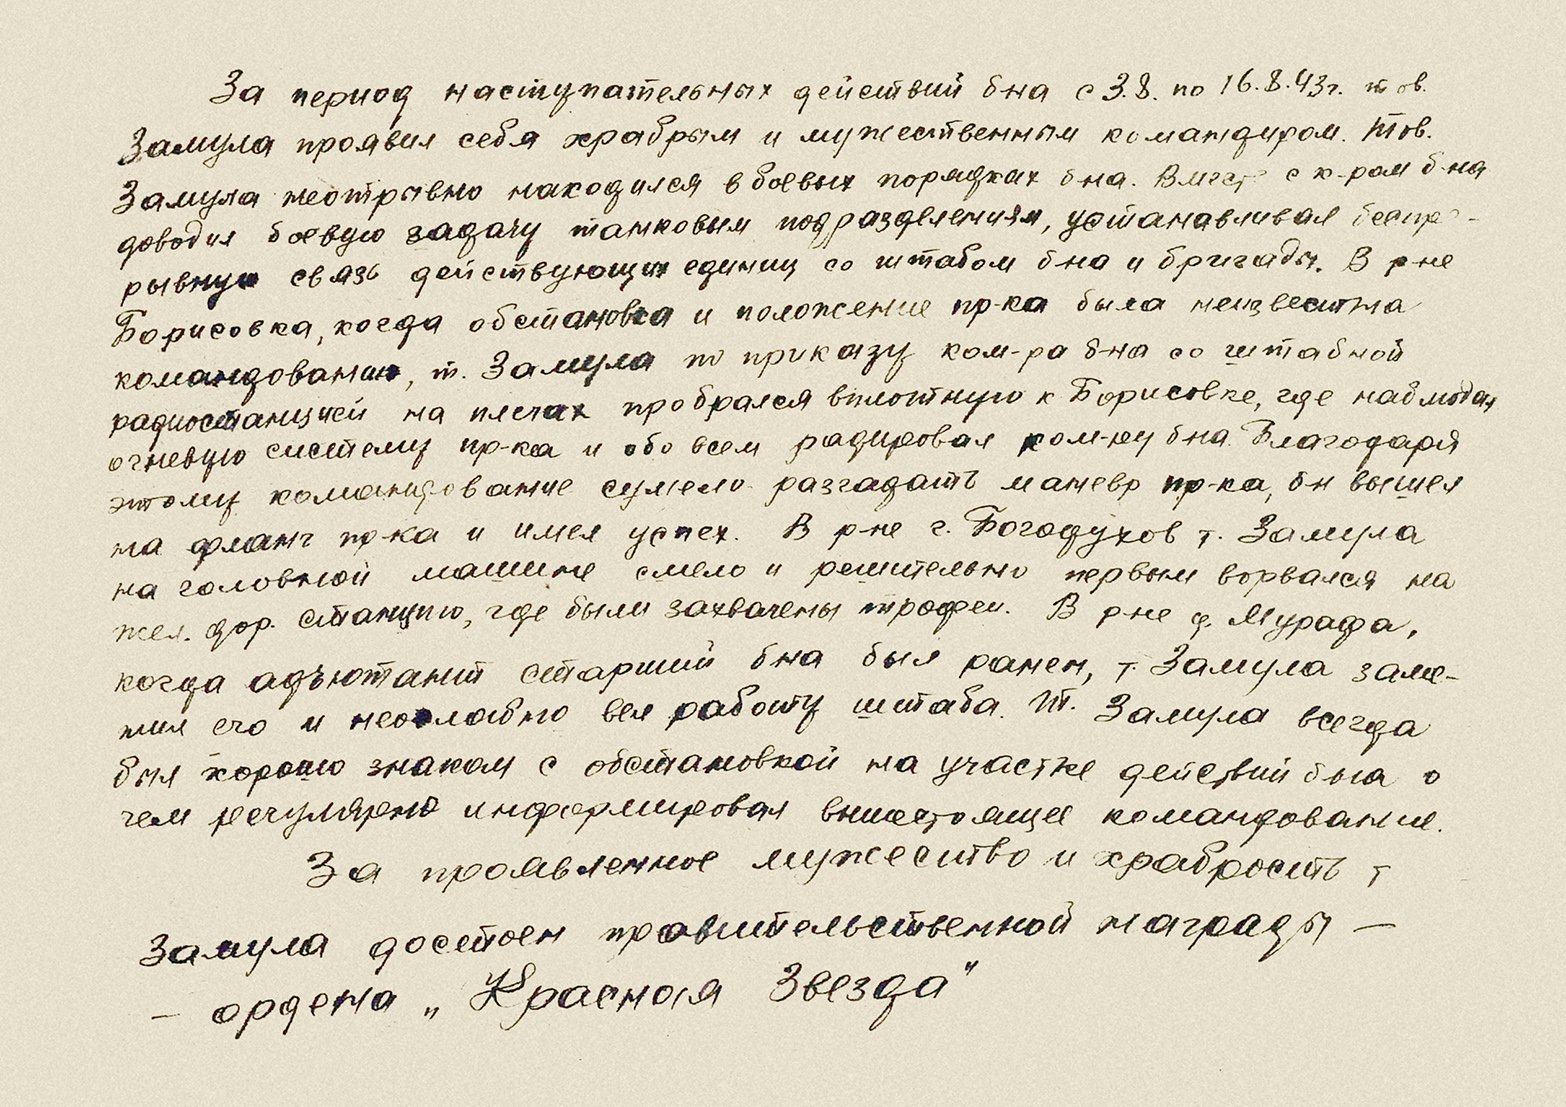 За период наступательных действий б-на с 3.8. по 16.8.43г. тов.
Замула проявил себя храбрым и мужественным командиром. Тов.
Замула неотрывно находился в боевых порядках б-на. Вместе с к-ром б-на
доводил боевую задачу танковым подразделениям, устанавливал беспре-
рывную связь действующих единиц со штабом б-на и бригады. В р-не
Борисовка, когда обстановка и положение пр-ка была неизвестна
командованию, т. Замула по приказу ком-ра б-на со штабной
радиостанцией на плечах пробрался вплотную к Борисовке, где наблюдал
огневую систему пр-ка и обо всем радировал ком-ру б-на. Благодаря
этому командование сумело разгадать маневр пр-ка, б-н вышел
на фланг пр-ка и имел успех. В р-не г. Богодухов т. Замула
на головной машине смело и решительно первым ворвался на
жел. дор. станцию, где были захвачены трофеи. В р-не д. Мурафа,
когда адъютант старший б-на был ранен, т. Замула заме-
нил его и неослабно вел работу штаба. Т. Замула всегда
был хорошо знаком с обстановкой на участке действий б-на о
чем регулярно информировал вышестоящее командование.
За проявленное мужество и храбрость т
Замула достоен правительственной награды —
— ордена „Красная Звезда"